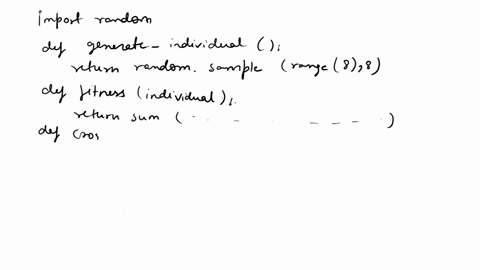 import random
def generate_individual ();
return random. sample (range(8),8)
def fitness (individual);
return sum ( . . _ . _ _ _ . )
def cros